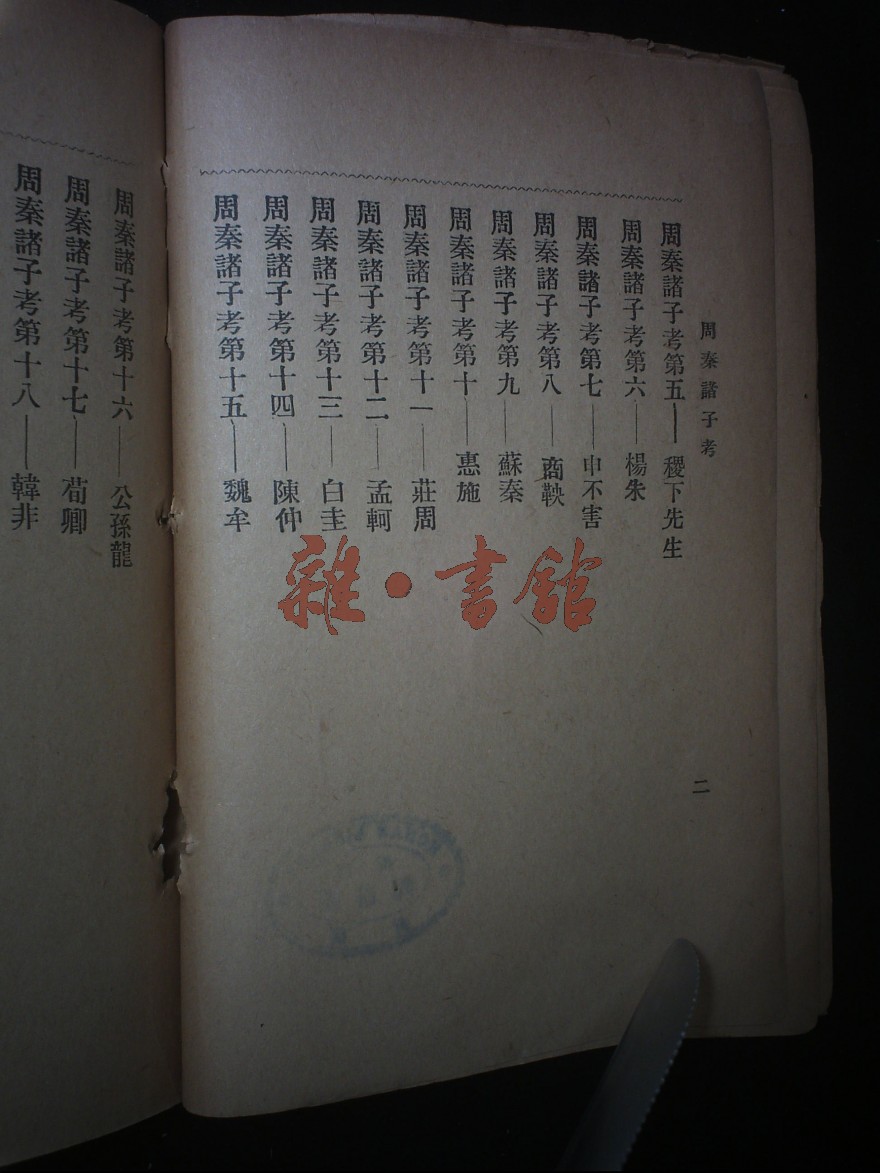 周秦諸子考
二
周秦諸子考第五——稷下先生
周秦諸子考第六——楊朱
周秦諸子考第七——申不害
周秦諸子考第八——商鞅
周秦諸子考第九——蘇秦
周秦諸子考第十——惠施
周秦諸子考第十一——莊周
周秦諸子考第十二——孟軻
周秦諸子考第十三——白圭
周秦諸子考第十四——陳仲
周秦諸子考第十五——魏牟
周秦諸子考第十六——公孫龍
周秦諸子考第十七——荀卿
周秦諸子考第十八——韓非
雜·書館